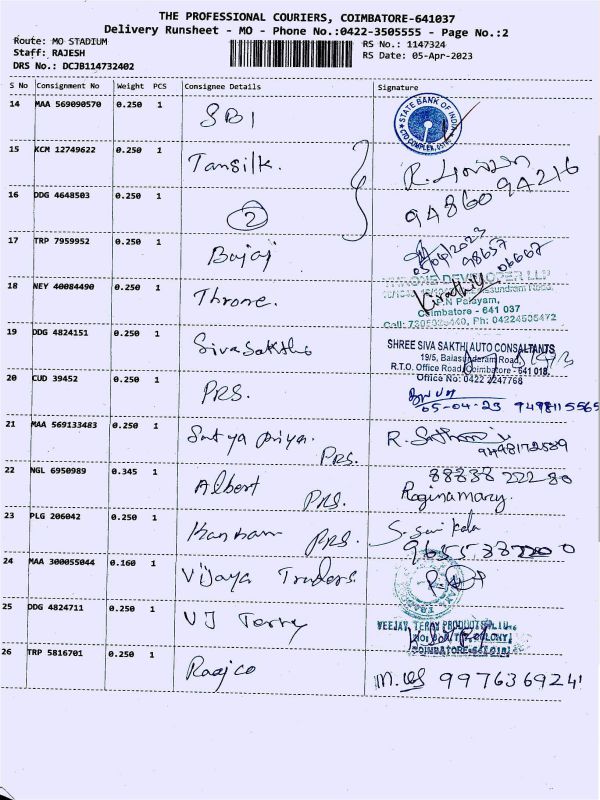 THE PROFESSIONAL COURIERS, COIMBATORE-641037
Delivery Runsheet - MO - Phone No.:0422-3505555 - Page No.:2
Route: MO STADIUM
RS No.: 1147324
Staff: RAJESH
RS Date: 05-Apr-2023
DRS No.: DCJB114732402
S No Consignment No Weight PCS Consignee Details Signature
14 MAA 569090570 0.250 1 SBI
STATE BANK OF INDIA
15 KCM 12749622 0.250 1 Tansilk.
R.
94860 94216
16 DDG 4648503 0.250 1 2
17 TRP 7959952 0.250 1 Bajaj
05/04/2023
98657 06667
18 NEY 40084490 0.250 1 Throne.
THRONE DEVELOPER LLP
P.N Palayam,
Coimbatore - 641 037
19 DDG 4824151 0.250 1 Siva Sakthi
SHREE SIVA SAKTHI AUTO CONSALTANTS
19/5, Balasunderam Road,
R.T.O. Office Road, Coimbatore - 641 018.
Office No: 0422 2247768
20 CUD 39452 0.250 1 PRS.
05-04-23 9498115565
21 MAA 569133483 0.250 1 Satya priya. PRS.
R.
22 NGL 6950989 0.345 1 Albert PRS.
88838 22280
Reginamary.
23 PLG 206042 0.250 1 PRS.
24 MAA 300055044 0.160 1 Vijaya Traders
25 DDG 4824711 0.250 1 VJ Terry
VEEJAY TERRY PRODUCTS
COIMBATORE-641 018
26 TRP 5816701 0.250 1 Raajco
M. 997636924